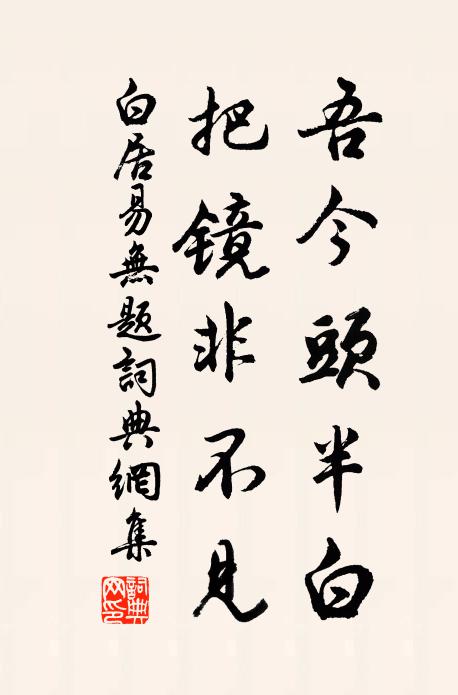 吾今頭半白
把镜非不見
白居易無題詞典網集
詞典网印